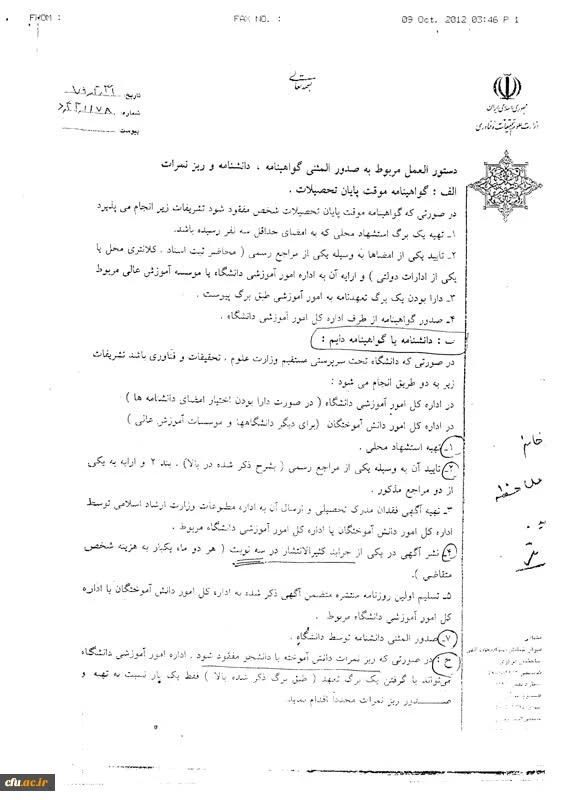 FROM :
FAX NO. :
09 Oct. 2012 03:46 P 1
بسمه تعالی
جمهوری اسلامی ایران
وزارت علوم تحقیقات و فناوری
تاریخ:
شماره:
پیوست
دستور العمل مربوط به صدور المثنی گواهینامه ، دانشنامه و ریز نمرات
الف : گواهینامه موقت پایان تحصیلات .
در صورتی که گواهینامه موقت پایان تحصیلات شخص مفقود شود تشریفات زیر انجام می پذیرد
۱ـ تهیه یک برگ استشهاد محلی که به امضای حداقل سه نفر رسیده باشد.
۲ـ تایید یکی از امضاها به وسیله یکی از مراجع رسمی ( محاضر ثبت اسناد . کلانتری محل یا
یکی از ادارات دولتی ) و ارایه آن به اداره امور آموزشی دانشگاه یا موسسه آموزش عالی مربوط
۳ـ دارا بودن یک برگ تعهدنامه به امور آموزشی طبق برگ پیوست .
۴ـ صدور گواهینامه از طرف اداره کل امور آموزشی دانشگاه .
ب : دانشنامه یا گواهینامه دایم :
در صورتی که دانشگاه تحت سرپرستی مستقیم وزارت علوم . تحقیقات و فناوری باشد تشریفات
زیر به دو طریق انجام می شود :
در اداره کل امور آموزشی دانشگاه ( در صورت دارا بودن اختیار امضای دانشنامه ها )
در اداره کل امور دانش آموختگان (برای دیگر دانشگاهها و موسسات آموزش عالی )
۱ـ تهیه استشهاد محلی .
۲ـ تایید آن به وسیله یکی از مراجع رسمی ( بشرح ذکر شده در بالا) . بند ۲ و ارایه به یکی
از دو مراجع مذکور .
۳ـ تهیه آگهی فقدان مدرک تحصیلی و ارسال آن به اداره مطبوعات وزارت ارشاد اسلامی توسط
اداره کل امور دانش آموختگان یا اداره کل امور آموزشی دانشگاه مربوط .
۴ـ نشر آگهی در یکی از جراید کثیرالانتشار در سه نوبت ( هر دو ماه یکبار به هزینه شخص
متقاضی ).
۵ـ تسلیم اولین روزنامه منتشره متضمن آگهی ذکر شده به اداره کل امور دانش آموختگان یا اداره
کل امور آموزشی دانشگاه مربوط .
۷ـ صدور المثنی دانشنامه توسط دانشگاه .
ج : در صورتی که ریز نمرات دانش آموخته یا دانشجو مفقود شود . اداره امور آموزشی دانشگاه
می‌تواند با گرفتن یک برگ تعهد ( طبق برگ ذکر شده بالا ) فقط یک بار نسبت به تهیه و
صدور ریز نمرات مجدداً اقدام نماید
خانم
ملاحظه
cfu.ac.ir